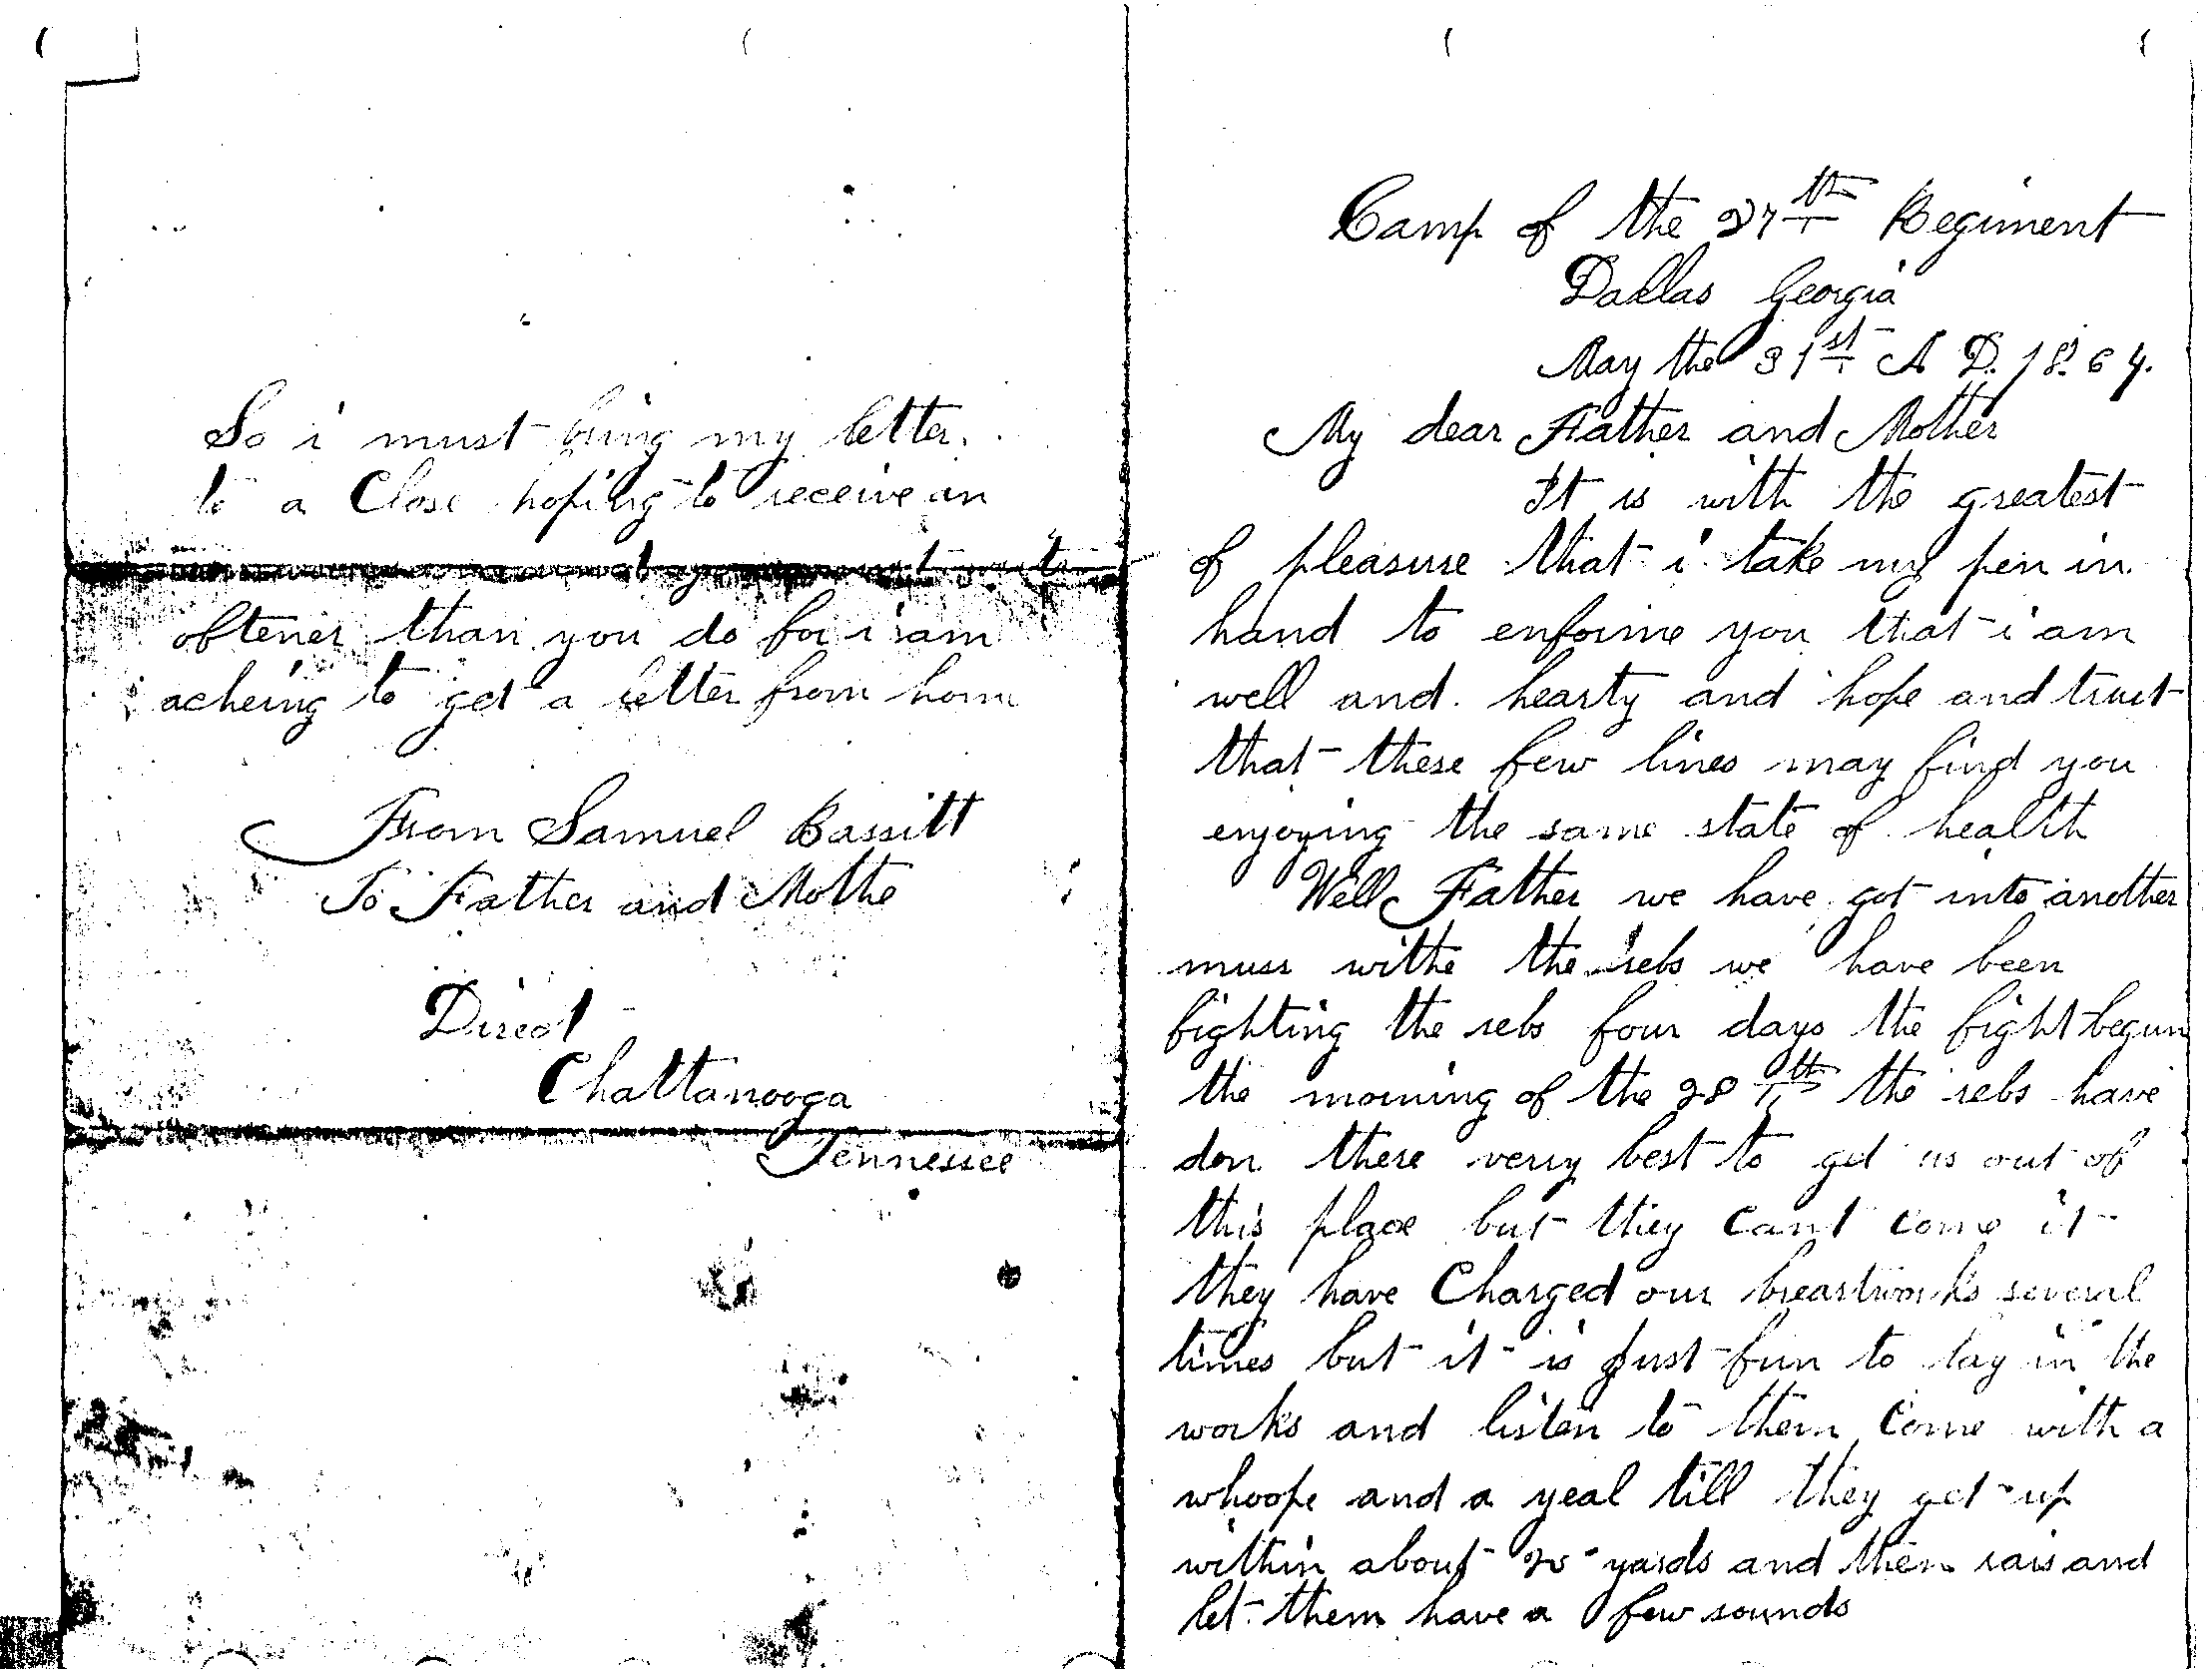 So i must bring my letter
to a Close hoping to receive an
oftener than you do for i am
acheing to get a letter from hom
From Samuel Bassitt
To Father and Mothe
Direct
Chattanooga
Tennessee
Camp of the 27th Regiment
Dallas Georgia
May the 31st A D. 1864.
My dear Father and Mother
It is with the greatest
of pleasure that i take my pen in
hand to enforme you that i am
well and hearty and hope and trust
that these few lines may find you
enjoying the same state of health
Well Father we have got into another
muss withe the rebs we have been
fighting the rebs four days the fight begun
the morning of the 28th the rebs have
don there verry best to get us out of
this place but they cant come it
they have Charged our breastworks several
times but it is just fun to lay in the
works and listen to them Come with a
whoope and a yeal till they get up
within about 20 yards and then rais and
let them have a few rounds